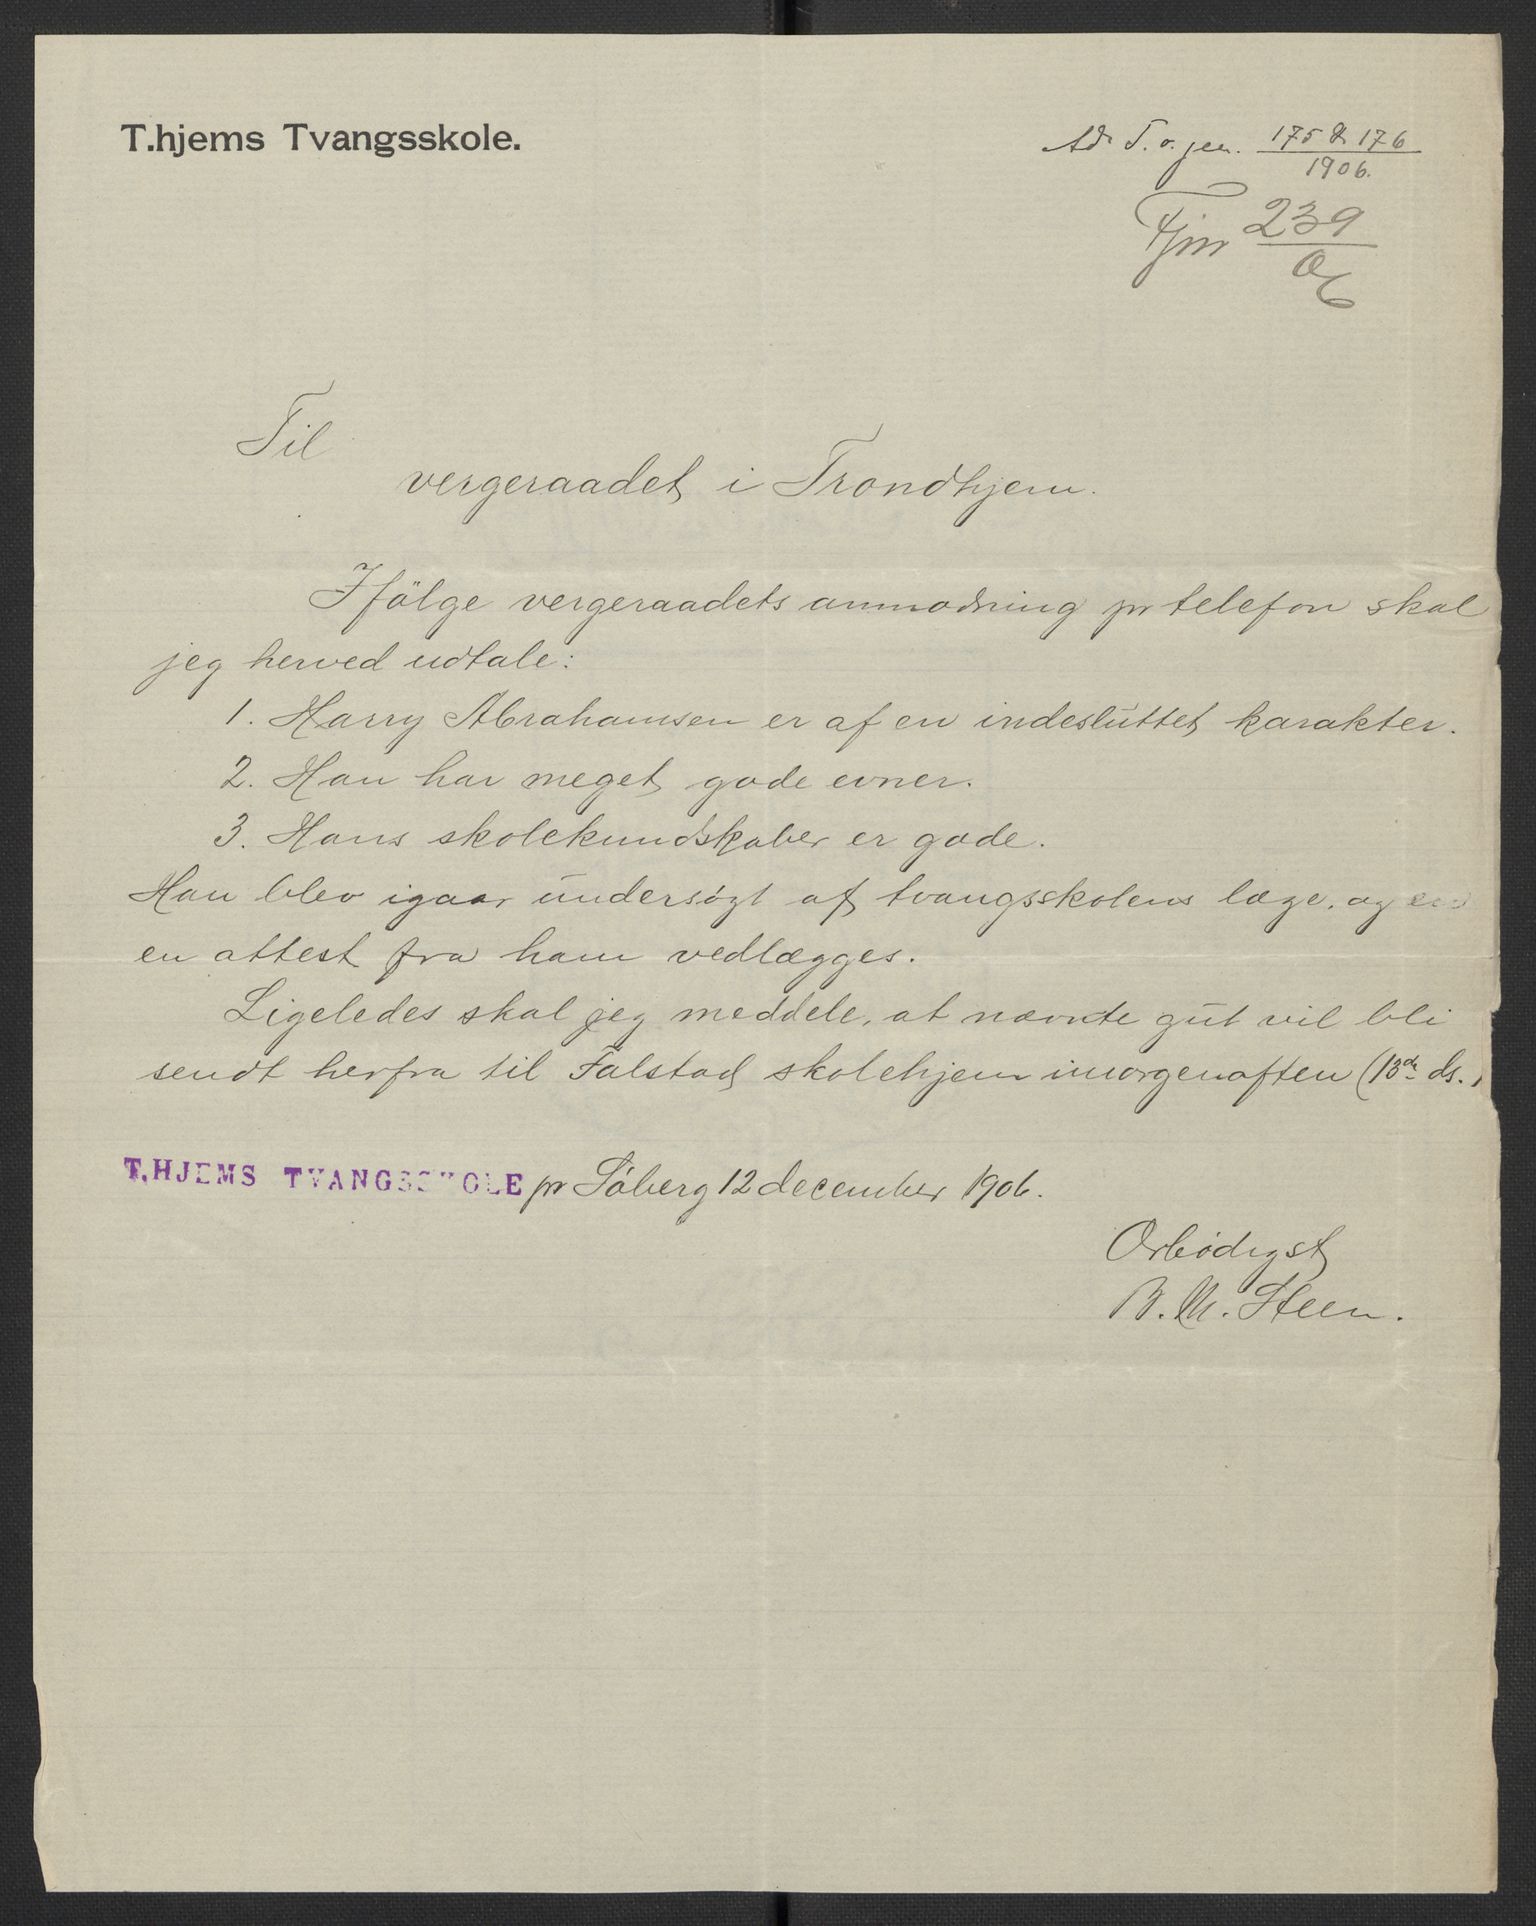 T.hjems Tvangsskole.
Ad. T. v. jen. 175 & 176
1906.
Tjnr 239
06
Til
vergeraadet i Trondhjem.
Ifölge vergeraadets anmodning pr telefon skal
jeg herved udtale:
1. Harry Abrahamsen er af en indesluttet karakter.
2. Han har meget gode evner.
3. Hans skolekundskaber er gode.
Han blev igaar undersøgt af tvangsskolens læge, og
en attest fra ham vedlægges.
Ligeledes skal jeg meddele, at nævnte gut vil bli
sendt herfra til Falstad skolehjem imorgenaften (13de ds.)
T.HJEMS TVANGSSKOLE pr Søberg 12 december 1906.
Ærbødigst
B. M. Steen.